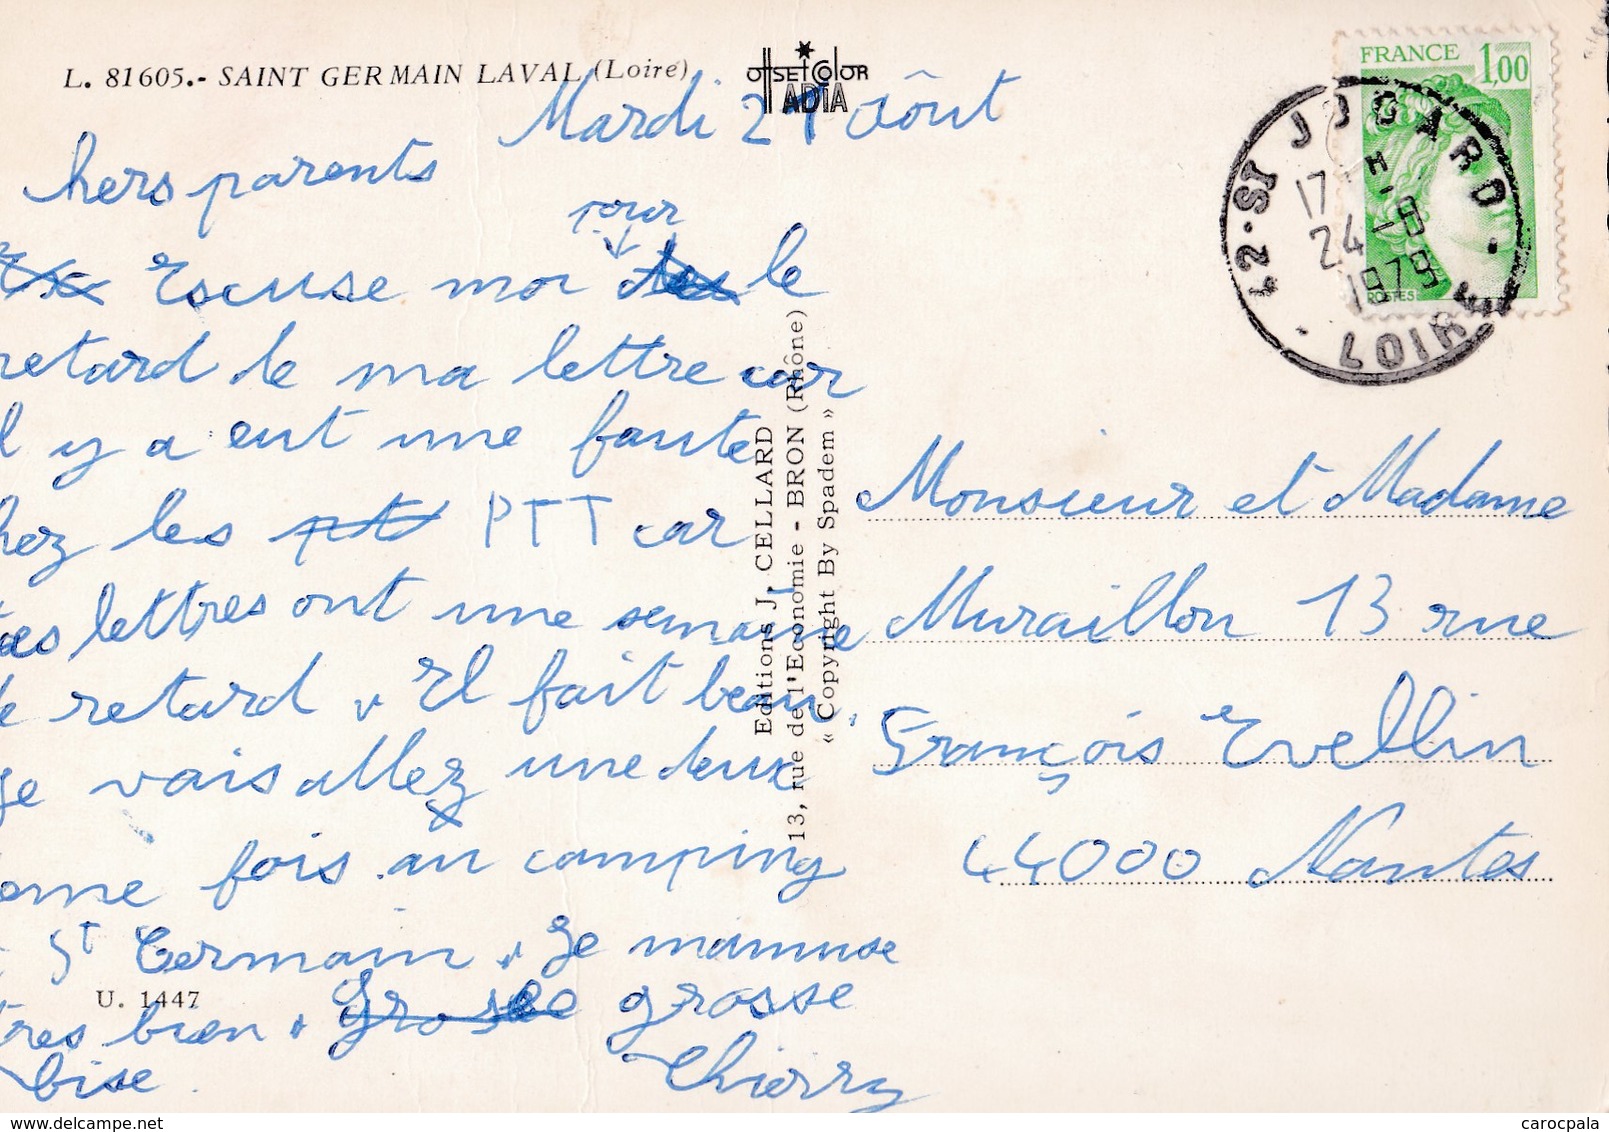 L. 81605.- SAINT GERMAIN LAVAL (Loire)
OffSEt COlOR
ADIA
Mardi 21 Aôut
hers parents
pour
Escuse moi le
retard de ma lettre car
l y a eut une faute
hez les PTT car
es lettres ont une semaine
e retard. Il fait beau.
ge vais allez une deux
eme fois au camping
St Germain. Je mamuse
U. 1447
tres bien. grosse
bise. Thierry
Editions J. CELLARD
13, rue de l'Economie - BRON (Rhône)
« Copyright By Spadem »
FRANCE 1,00
POSTES
42-ST J GARD
17 H
24 -8
1979
LOIRE
Monsieur et Madame
Muraillon 13 rue
François Evellin
44000 Nantes
carocpala